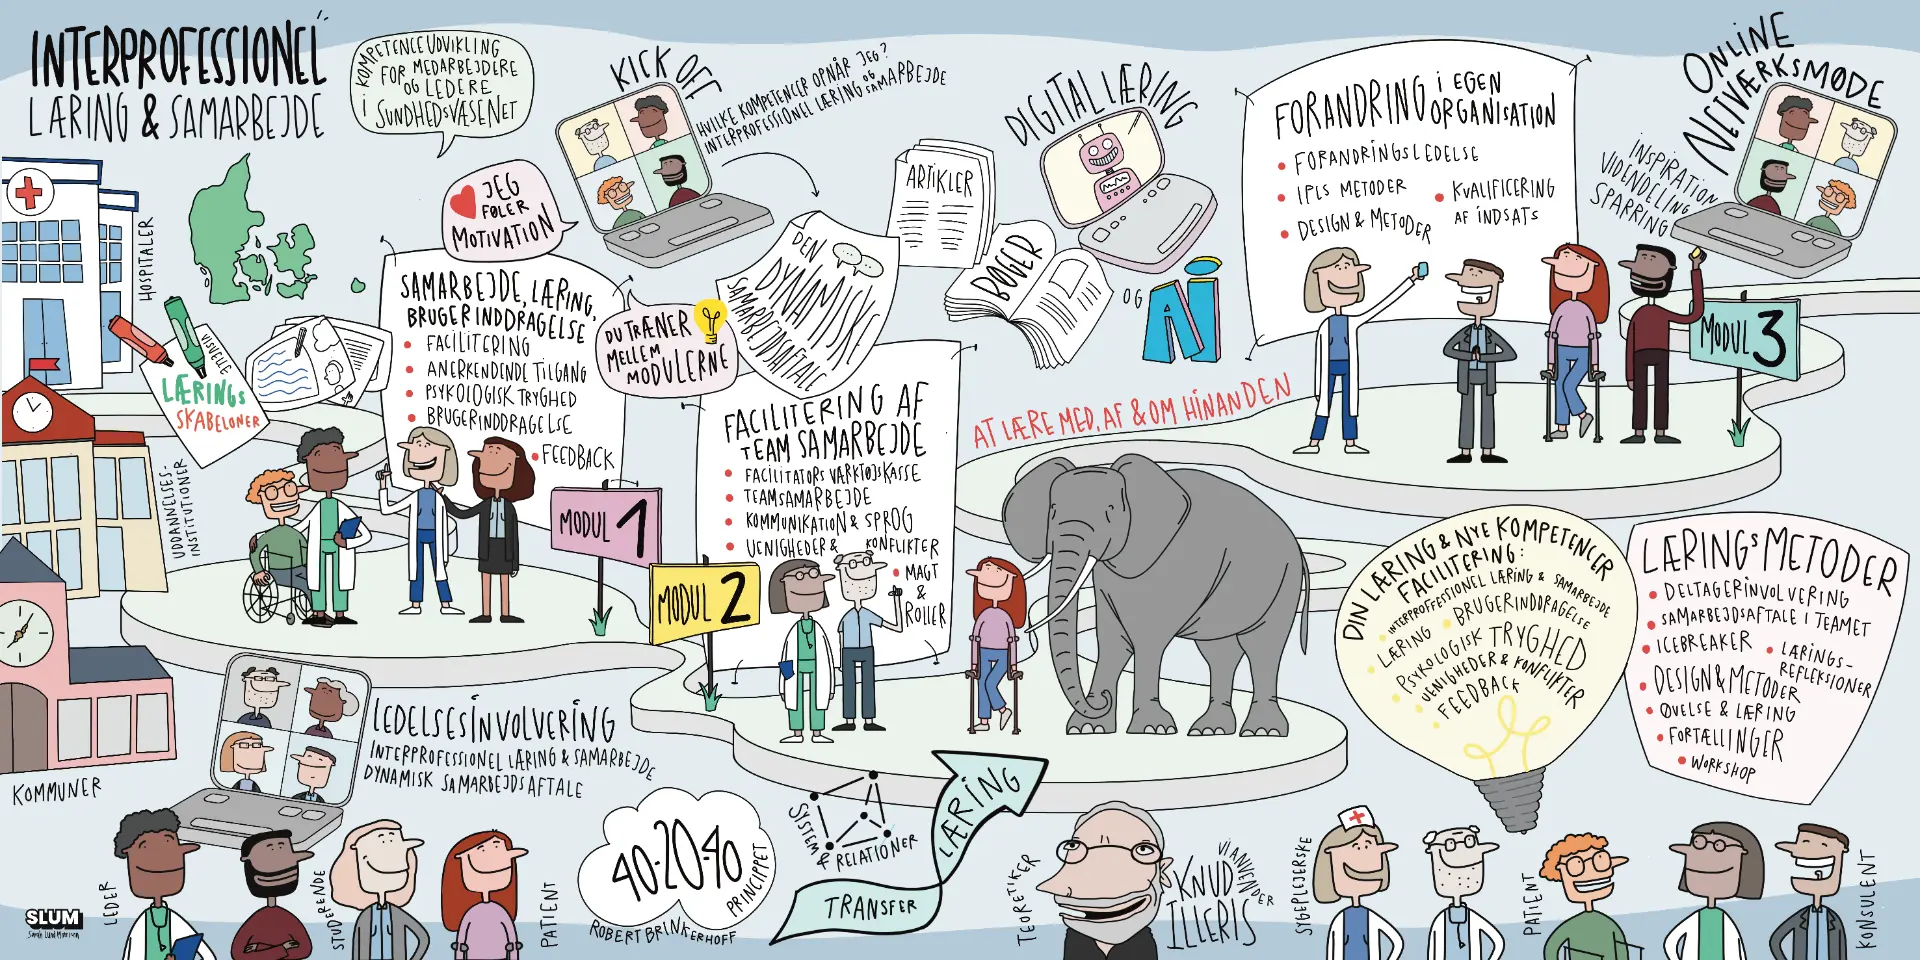 INTERPROFESSIONEL
LÆRING & SAMARBEJDE
KOMPETENCEUDVIKLING
FOR MEDARBEJDERE
OG LEDERE
I SUNDHEDSVÆSENET
KICK OFF
HVILKE KOMPETENCER OPNÅR JEG?
INTERPROFESSIONEL LÆRING OG SAMARBEJDE
JEG
FØLER
MOTIVATION
HOSPITALER
VISUELLE
LÆRINGS
SKABELONER
UDDANNELSES-
INSTITUTIONER
KOMMUNER
SAMARBEJDE, LÆRING,
BRUGERINDDRAGELSE
FACILITERING
ANERKENDENDE TILGANG
PSYKOLOGISK TRYGHED
BRUGERINDDRAGELSE
FEEDBACK
MODUL 1
DU TRÆNER
MELLEM
MODULERNE
DEN
DYNAMISKE
SAMARBEJDSAFTALE
ARTIKLER
BØGER
DIGITAL LÆRING
OG
AI
FACILITERING AF
TEAM SAMARBEJDE
FACILITATORS VÆRKTØJSKASSE
TEAMSAMARBEJDE
KOMMUNIKATION & SPROG
UENIGHEDER & KONFLIKTER
MAGT
&
ROLLER
MODUL 2
AT LÆRE MED, AF & OM HINANDEN
FORANDRING I EGEN
ORGANISATION
FORANDRINGSLEDELSE
IPLS METODER
DESIGN & METODER
KVALIFICERING
AF INDSATS
MODUL 3
ONLINE
NETVÆRKSMØDE
INSPIRATION
VIDENDELING
SPARRING
DIN LÆRING & NYE KOMPETENCER
FACILITERING:
INTERPROFESSIONEL LÆRING & SAMARBEJDE
LÆRING
BRUGERINDDRAGELSE
PSYKOLOGISK TRYGHED
UENIGHEDER & KONFLIKTER
FEEDBACK
LÆRINGSMETODER
DELTAGERINVOLVERING
SAMARBEJDSAFTALE I TEAMET
ICEBREAKER
LÆRINGS-
REFLEKSIONER
DESIGN & METODER
ØVELSE & LÆRING
FORTÆLLINGER
WORKSHOP
LEDELSESINVOLVERING
INTERPROFESSIONEL LÆRING & SAMARBEJDE
DYNAMISK SAMARBEJDSAFTALE
40-20-40
PRINCIPPET
ROBERT BRINKERHOFF
SYSTEM
& RELATIONER
TRANSFER
LÆRING
TEORETIKER
VI ANVENDER
KNUD
ILLERIS
LEDER
STUDERENDE
PATIENT
SYGEPLEJERSKE
PATIENT
KONSULENT
SLUM